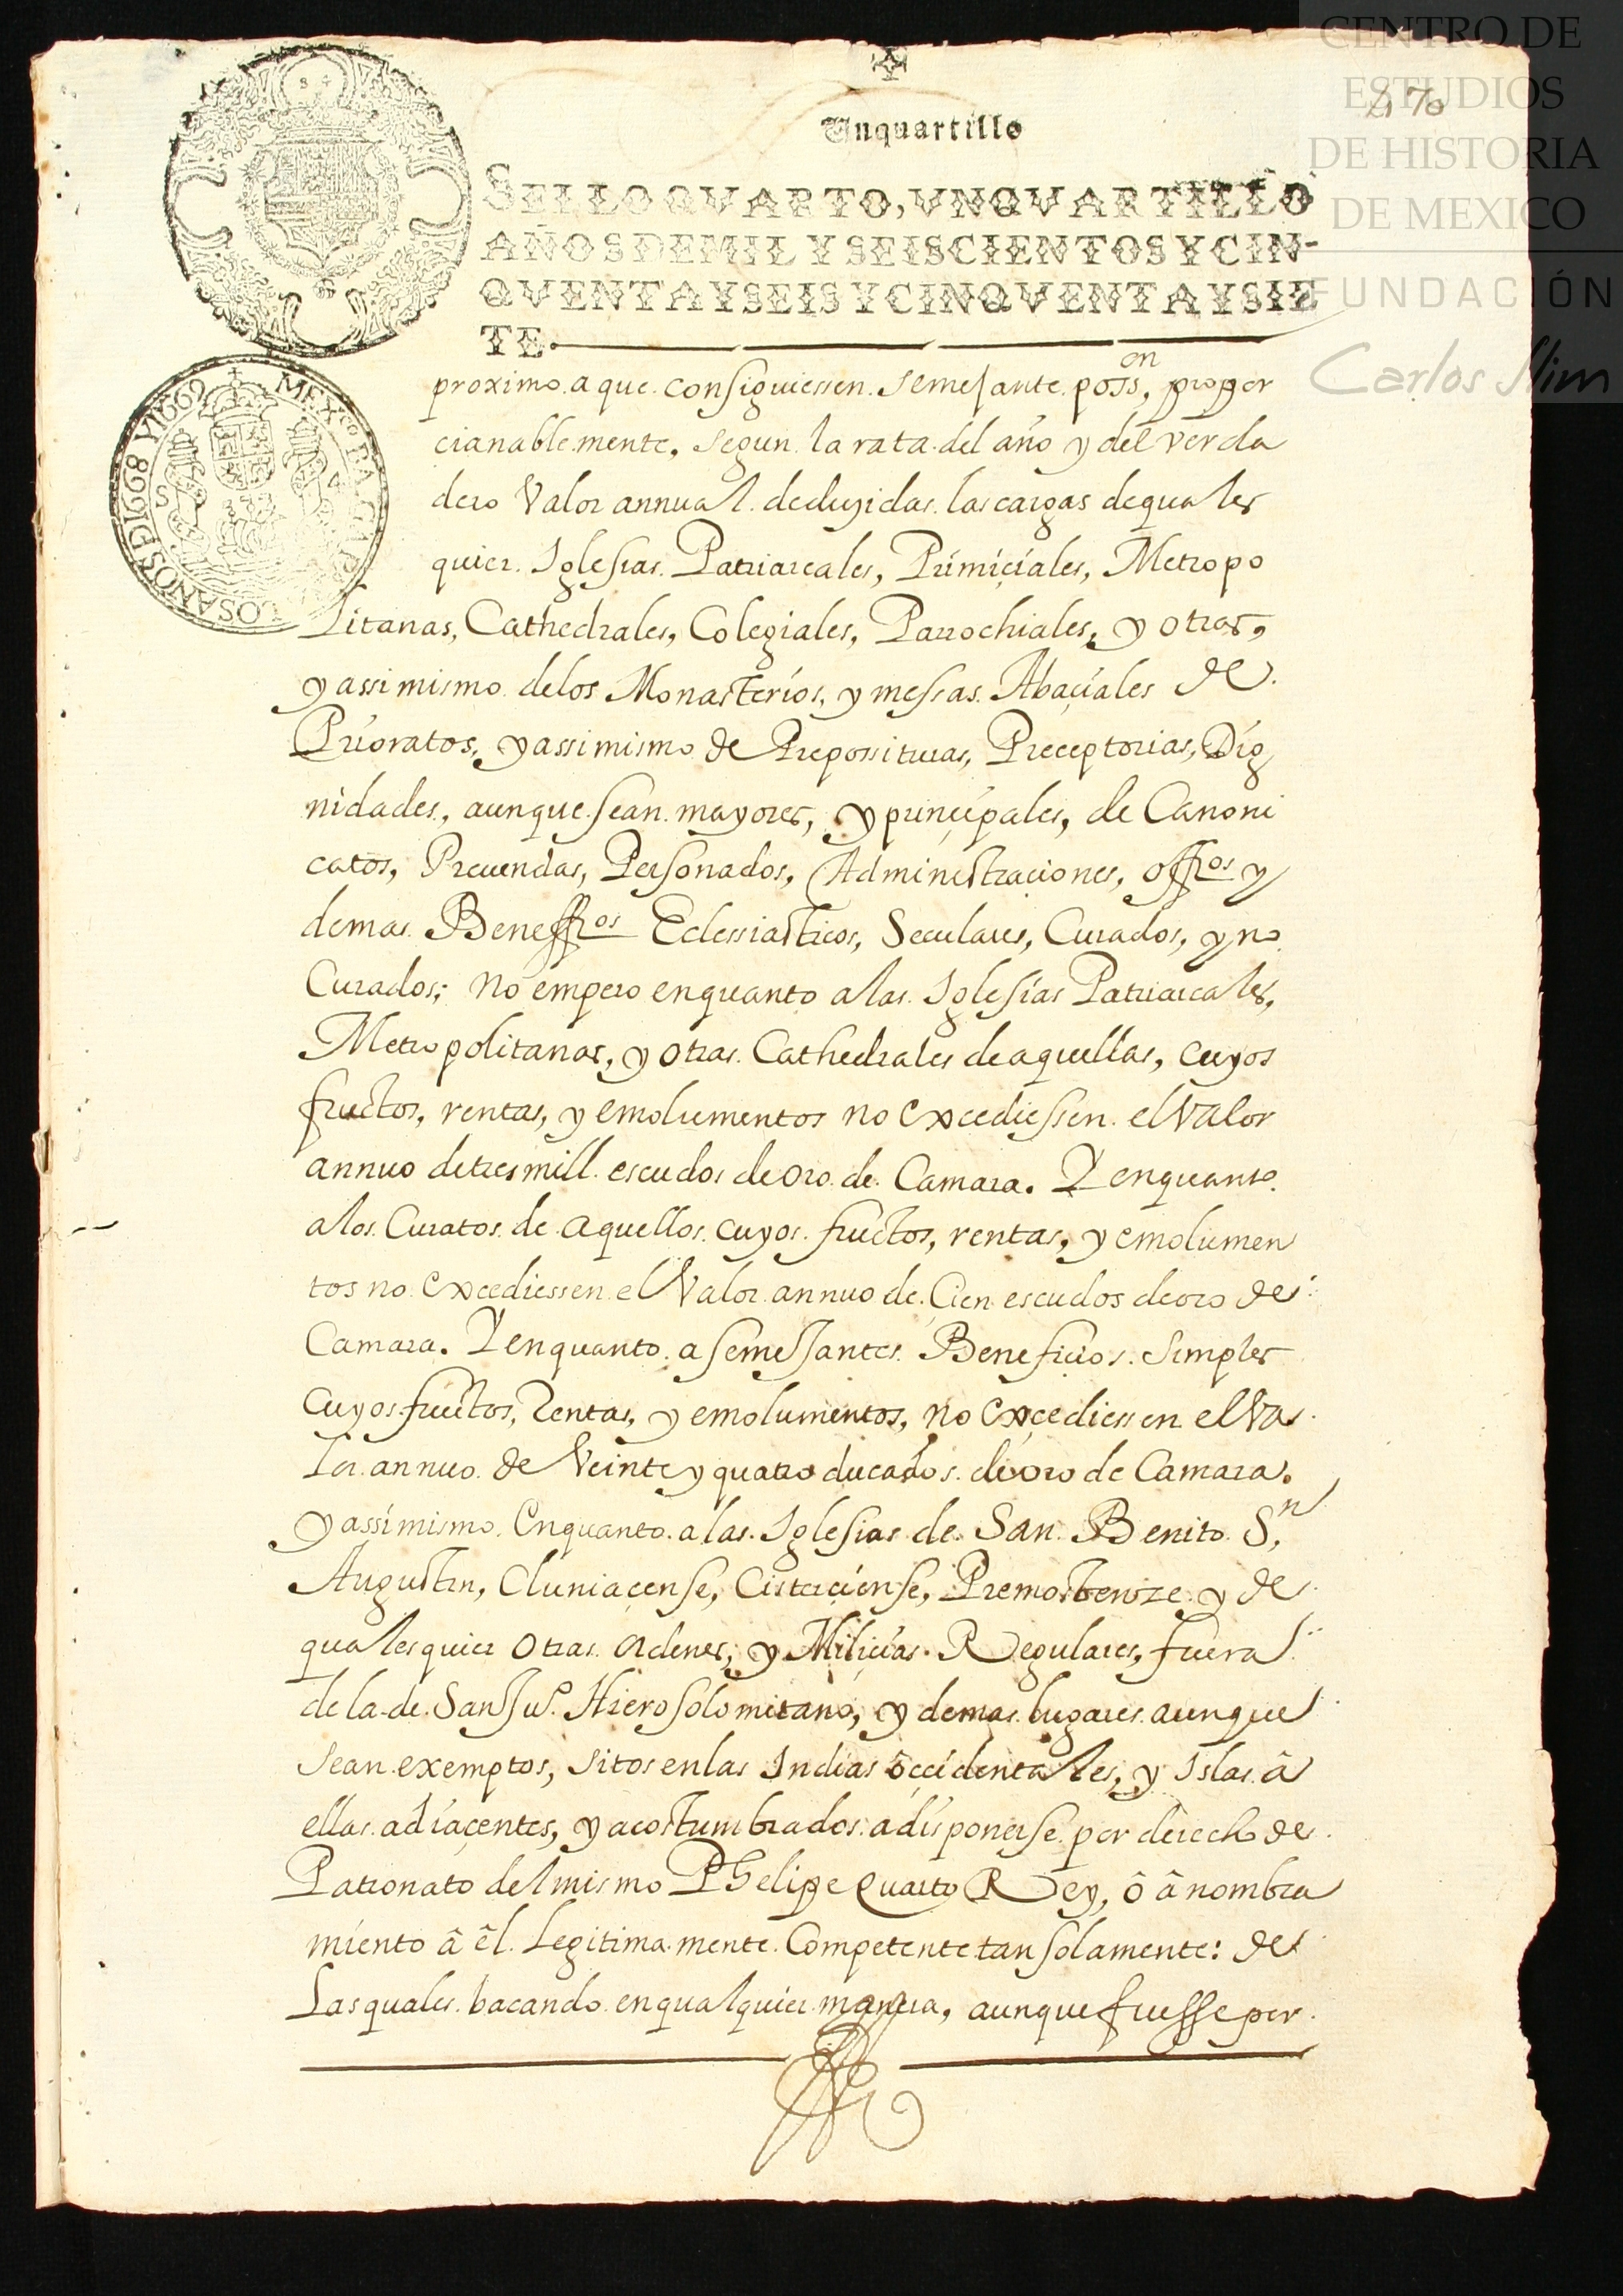 CENTRO DE
ESTUDIOS
DE HISTORIA
DE MEXICO
FUNDACIÓN
Carlos Slim
470
Vnquartillo
SELLO QVARTO, VN QVARTILLO
AÑOS DE MIL Y SEISCIENTOS Y CIN-
QVENTA Y SEIS Y CINQVENTA Y SIE
TE.
MEXco PA LOS AÑOS DI 1668 Y 1669
proximo a que consiguiessen semejante poss,on propor
cianablemente, segun la rata del año y del verda
dero Valor annual deduzidas las cargas de quales
quier Iglesias Patriarcales, Primiçiales, Metropo
litanas, Cathedrales, Colegiales, Parrochiales, y otras,
y assimismo de los Monasterios, y messas Abaçiales de
Prioratos, y assimismo de Prepossituras, Preceptorias, Dig
nidades, aunque sean mayores, y prinçipales, de Canoni
catos, Preuendas, Personados, Administraçiones, offros y
demas Beneffros Eclessiasticos, Seculares, Curados, y no
Curados; no empero enquanto a las Iglesias Patriarcales,
Metropolitanas, y otras Cathedrales de aquellas, cuyos
fructos, rentas, y emolumentos no excediessen el valor
annuo de tres mill escudos de oro de Camara. Y enquanto
a los Curatos de aquellos cuyos fructos, rentas, y emolumen
tos no excediessen el Valor annuo de Cien escudos de oro de
Camara. Y enquanto a semejantes Benefiçios Simples
cuyos fructos, Rentas, y emolumentos, no exçediessen el Va
lor annuo de Veinte y quatro ducados de oro de Camara.
y assimismo Enquanto a las Iglesias de San Benito S,n
Augustin, Cluniaçense, Cisterçiense, Premostenze y de
quales quier otras ordenes, y Miliçias Regulares, fuera
de la de San Ju.o Hierosolomitano, y demas lugares aunque
sean exemptos, sitos en las Indias ôccidentales, y Islas â
ellas adiaçentes, y acostumbrados a disponerse por derecho de
Patronato del mismo Phelipe Quarto Rey, ô â nombra
miento â êl Legitima mente Competente tan solamente: de
Las quales bacando en qualquier manera, aunque fuesse por